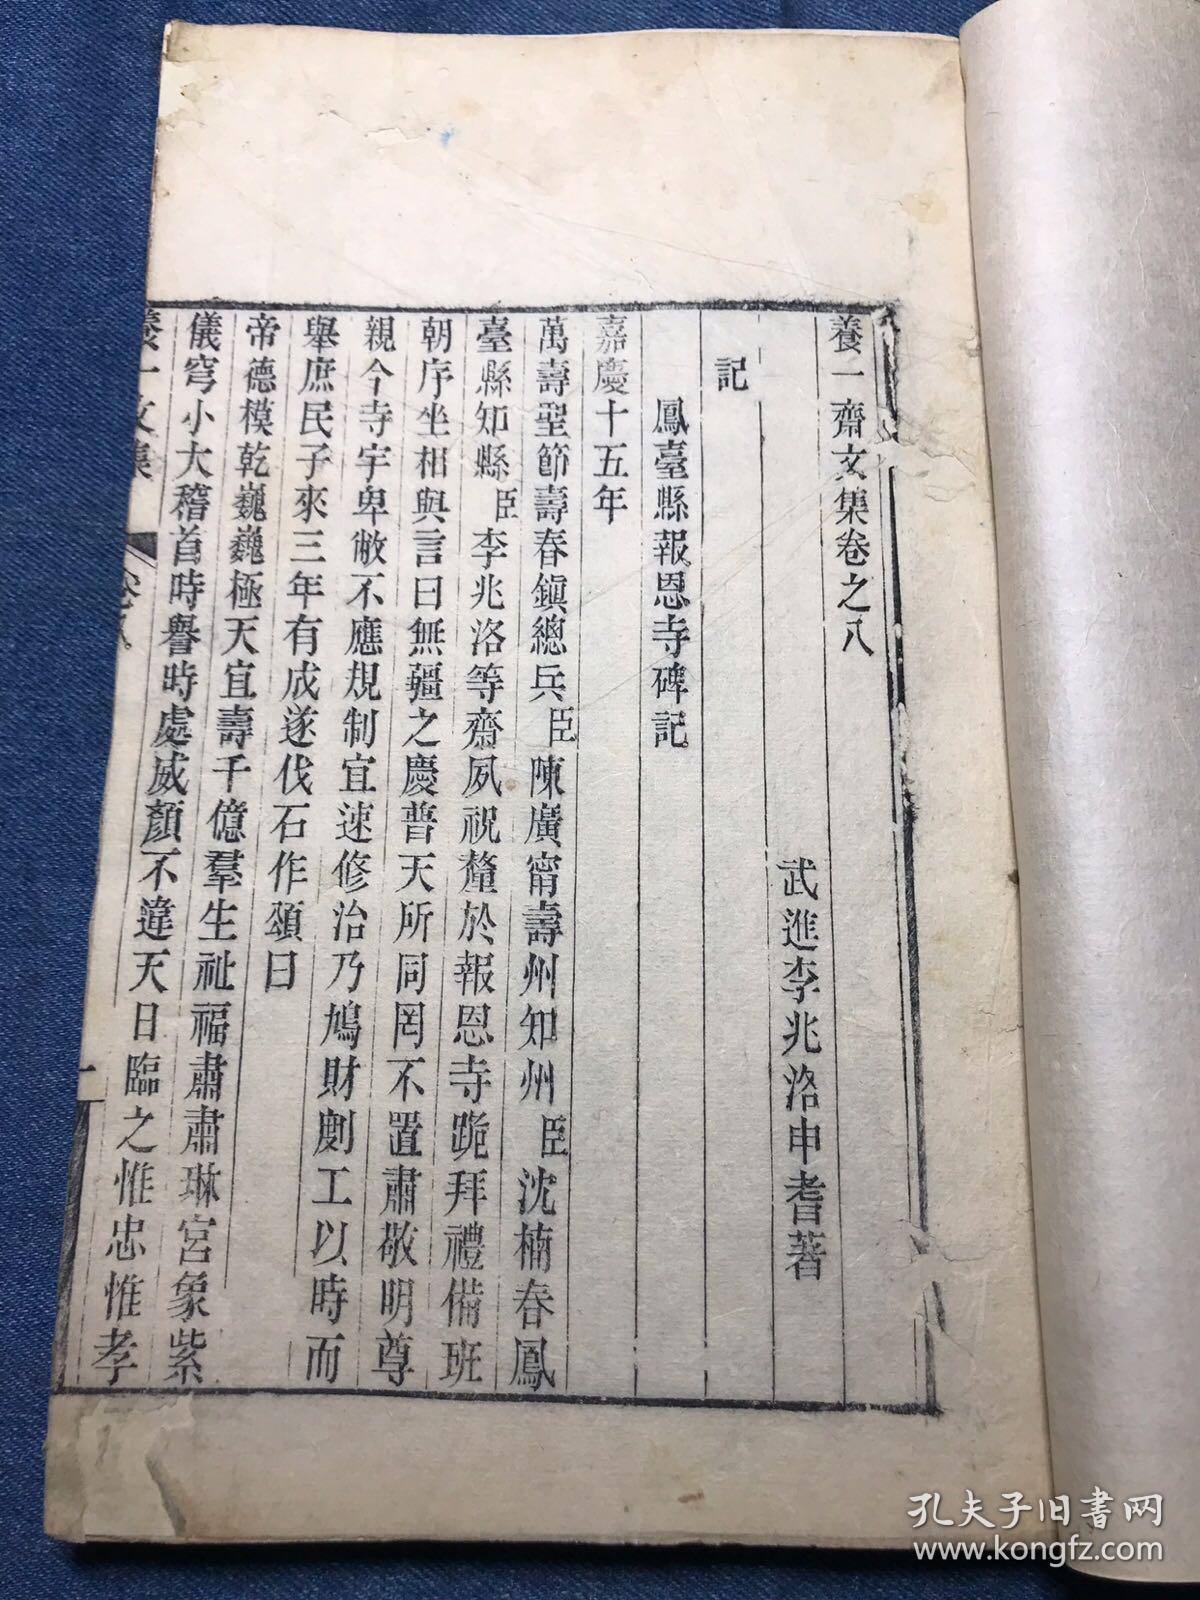 養一齋文集卷之八
武進李兆洛申耆著
記
鳳臺縣報恩寺碑記
嘉慶十五年
萬壽聖節壽春鎮總兵臣陳廣甯壽州知州臣沈楠春鳳
臺縣知縣臣李兆洛等齋夙祝釐於報恩寺跪拜禮備班
朝序坐相與言曰無疆之慶普天所同罔不置肅敬明尊
親今寺宇卑敝不應規制宜速修治乃鳩財劇工以時而
舉庶民子來三年有成遂伐石作頌曰
帝德模乾巍巍極天宜壽千億羣生祉福肅肅琳宮象紫
儀穹小大稽首時譽時處威顏不違天日臨之惟忠惟孝
養一文集
卷八
一
孔夫子旧书网
www.kongfz.com